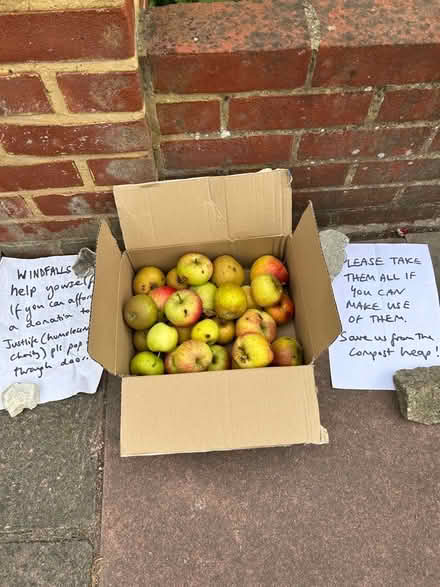 WINDFALLS
help yourself
If you can afford
a donation to
Justlife (homeless
charity) plz pop
through door
PLEASE TAKE
THEM ALL IF
YOU CAN
MAKE USE
OF THEM.
Save us from the
Compost heap!